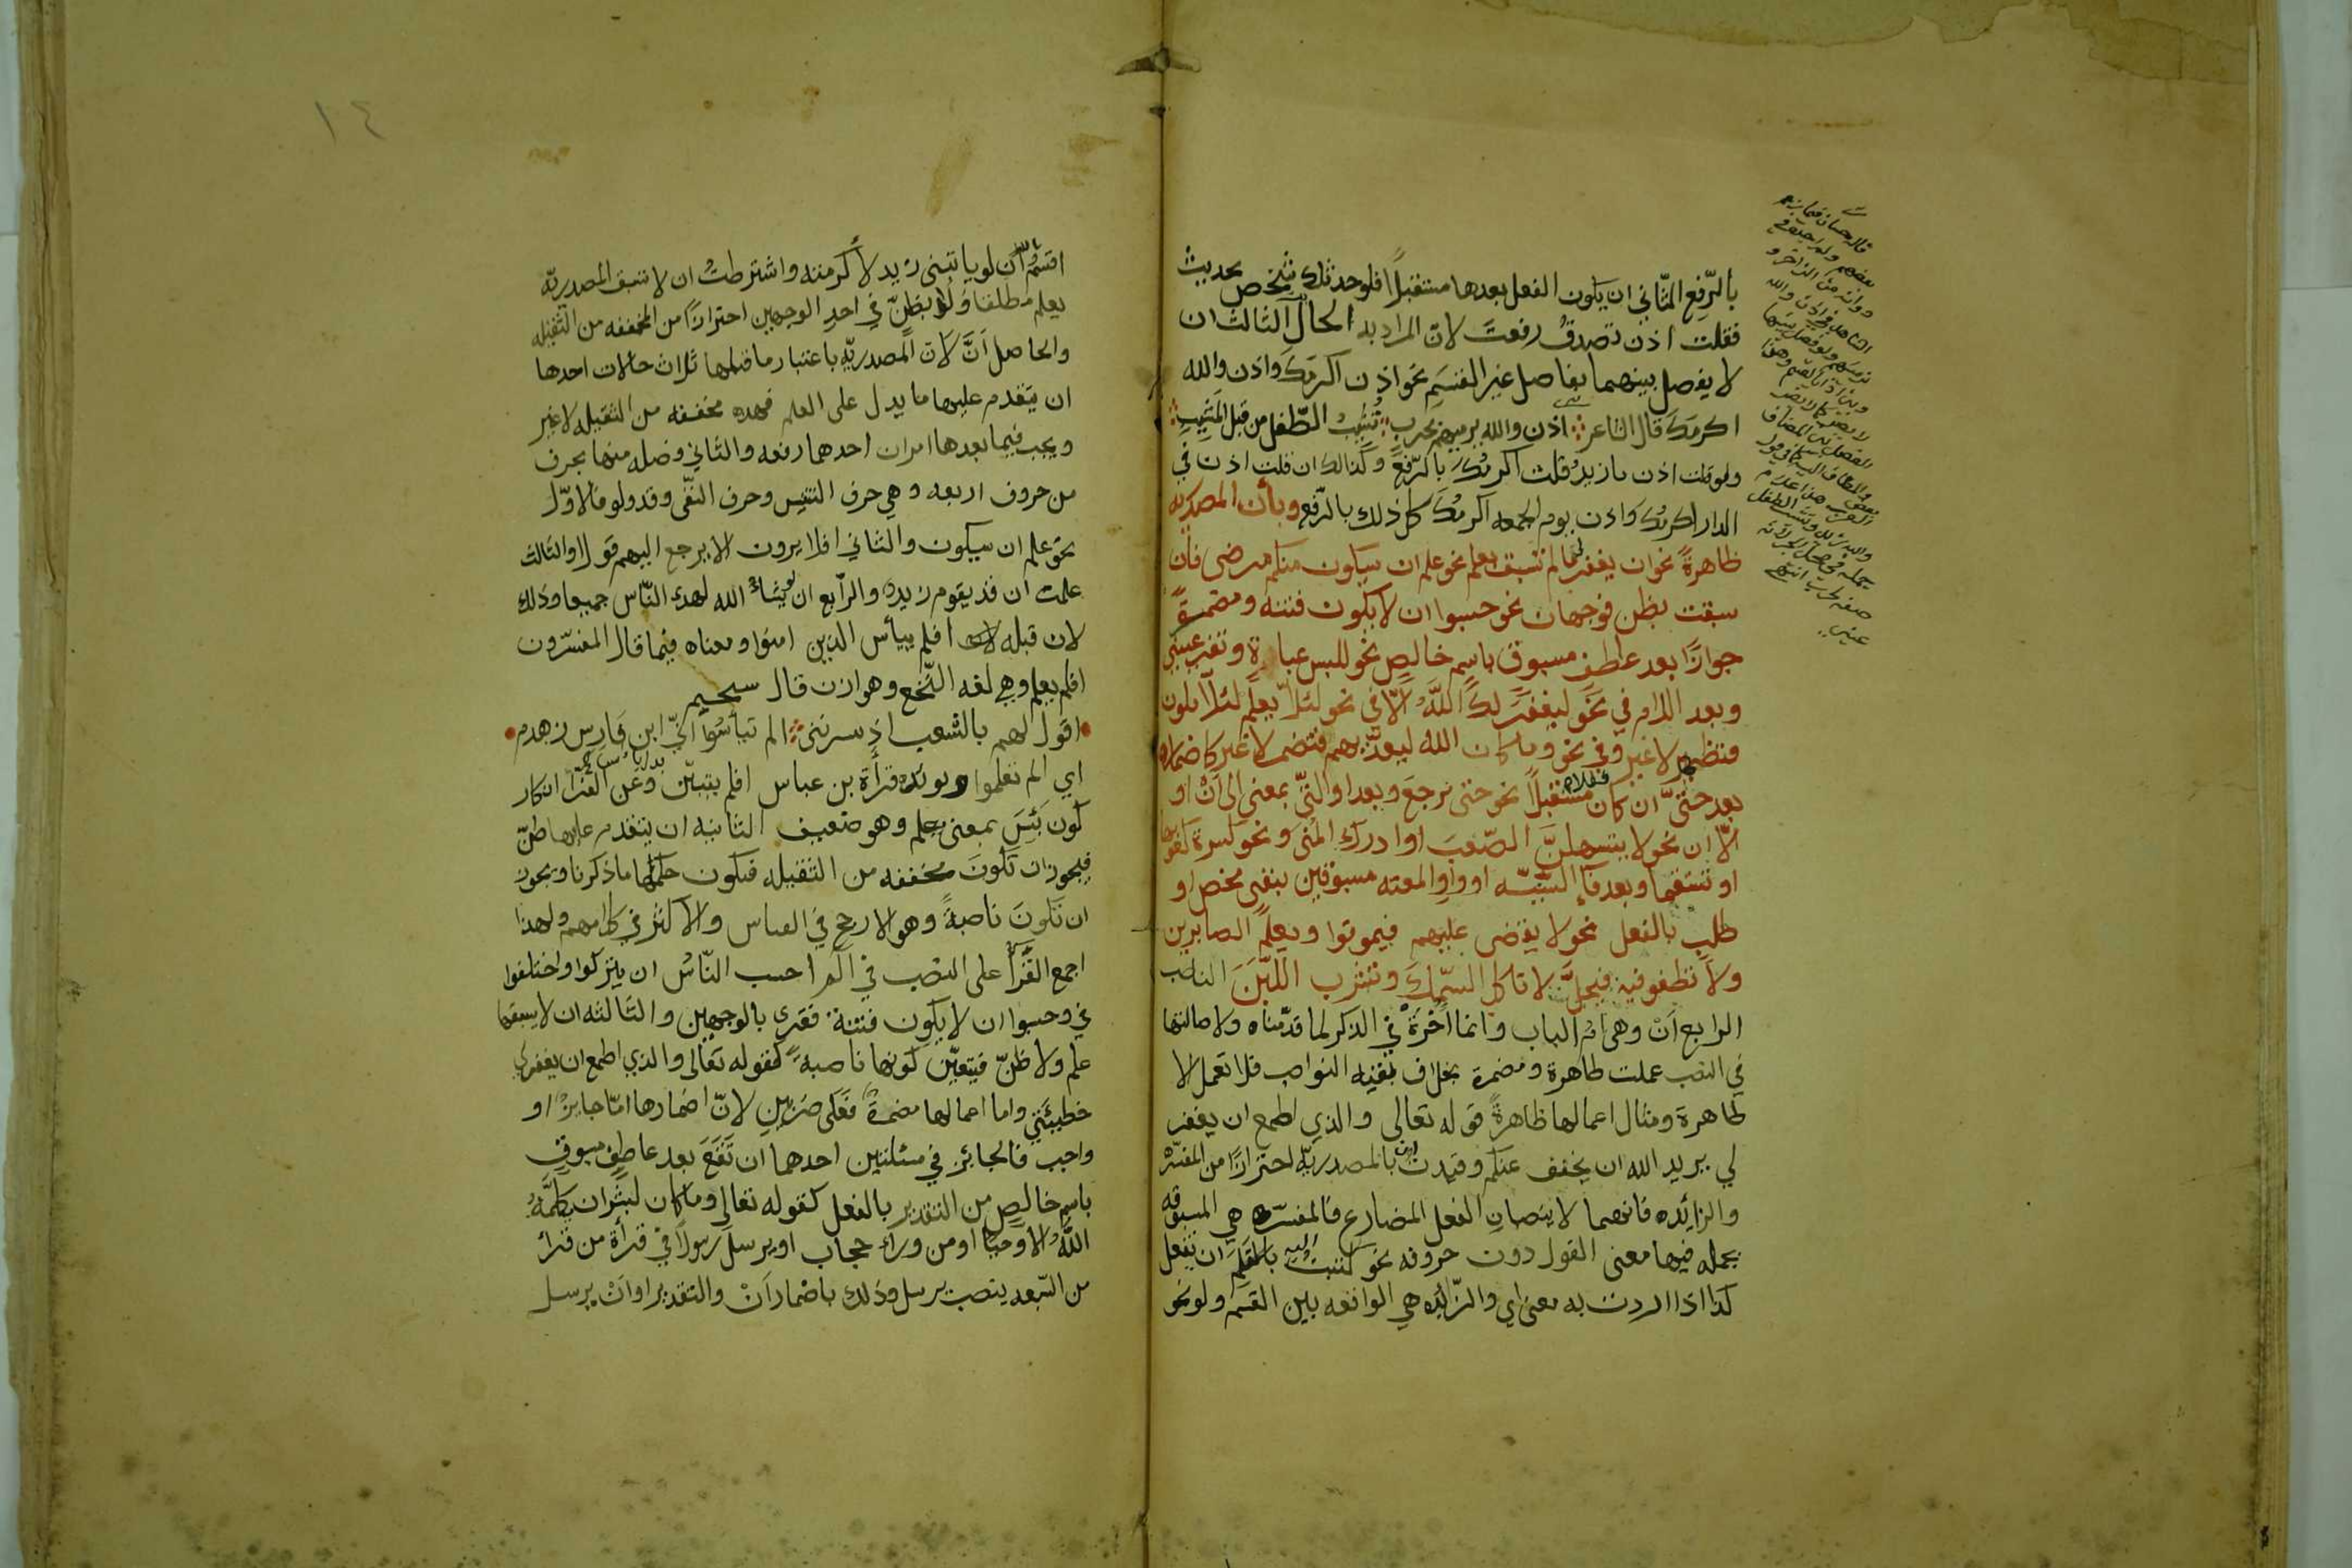 بالرّفع الثّاني ان يكون الفعل بعدها مستقبلًا فلو حدثك شخص بحديث
فقلت اذن تصدقُ رفعتَ لانّ المراد به الحال الثالث ان
لا يفصل بينهما بفاصل غير القسَمِ نحو اذن اكرمَكَ واذن والله
اكرمَكَ قال الشاعر اذن والله نرميهم بحرب تُشيبُ الطّفل من قبل المَشيبِ
ولو قلت اذن يا زيدُ قلت اكرمُكَ بالرّفع وكذلك ان قلت اذن في
الدار اكرمُكَ واذن يوم الجمعه اكرمُكَ كل ذلك بالرّفع وبأن المصدريه
ظاهرةً نحو ان يغفر لي ما لم تسبق بعلم نحو علم ان سيكون منكم مرضى فان
سبقت بظن فوجهان نحو حسبوا ان لا يكون فتنه ومضمرةً
جوازًا بعد عاطف مسبوق باسم خالص نحو للبس عباءة وتقر عيني
وبعد اللام في نحو ليغفرَ لك اللّهُ الّا في نحو لئلّا يعلم لئلّا يكون
فتظهر لا غير وفي نحو وما كان الله ليعذّبهم فتضمر لا غير كاضمارها
بعد حتىّ ان كان مستقبلًا نحو حتى يرجعَ وبعد او التّي بمعنى الى اَنْ او
الّا ان نحو لا ستسهلنَّ الصّعبَ او ادرك المُنى ونحو كسرت كعوبها
او تستقيما وبعد فاء السّببيّه او واو المعيه مسبوقين بنفي محض او
طلب بالفعل نحو لا يقضى عليهم فيموتوا ويعلمَ الصابرين
ولا تطغوا فيه فيحلَّ لا تاكل السّمك وتشرب اللّبَنَ الناصب
الرابع اَنْ وهي امّ الباب وانما اُخّرت في الذكر لما قدّمناه ولاصالتها
في النصب عملت ظاهرة ومضمرة بخلاف بقيه النواصب فلا تعمل الا
ظاهرة ومثال اعمالها ظاهرةً قوله تعالى والذي اطمع ان يغفر
لي يريد الله ان يخفف عنكم وقيدت ان بالمصدريّه احترازًا من المفسّره
والزائده فانهما لا ينصبان الفعل المضارع فالمفسّره هي المسبوقه
بجمله فيها معنى القول دون حروفه نحو كتبت اليه بالقلم ان تفعل
كذا اذا اردت به معنى اي والزّائده هي الواقعه بين القسَم ولو نحو
١٤
اقسمُ باللّه اَن لو ياتيني زيد لأكرمنه واشترطتُ ان لا تسبق المصدريّه
بعلم مطلقا ولا بظنّ في احد الوجهين احترازًا من المخففه من الثقيله
والحاصل اَنَّ لاَن المصدريّه باعتبار ما قبلها ثلاث حالات احدها
ان يتقدم عليها ما يدل على العلم فهذه مخففه من الثقيله لا غير
ويجب فيما بعدها امران احدهما رفعه والثاني فصله منها بحرف
من حروف اربعه وهي حرف التنفيس وحرف النّفي وقد ولو فالاوّل
نحو علم ان سيكون والثاني افلا يرون الا يرجع اليهم قولا والثالث
علمت ان قد يقوم زيد والرّابع ان لو يشاءُ الله لهدى النّاس جميعا وذلك
لان قبله افلم ييأس الذين امنوا ومعناه فيما قال المفسّرون
افلم يعلم وهي لغه النّخع وهوازن قال سحيم
اقول لهم بالشعب اذ يسرنني الم تيأسوا انّي ابن فارِس زهدم
اي الم تعلموا ويؤيده قرأة بن عباس افلم يتبيّن وعن الفرّا انكار
كون يَئِسَ بمعنى يعلم وهو ضعيف الثانيه ان يتقدم عليها ظنّ
فيجوز ان تكونَ مخففه من الثقيله فيكون حكمها ما ذكرنا ويجوز
ان تكونَ ناصبةً وهو الارجح في القياس والاكثر في كلامهم ولهذا
اجمع القُرّاء على النصب في الم احسب النّاسُ ان يتركوا واختلفوا
في وحسبوا ان لا يكون فتنة فقرئ بالوجهين والثالثه ان لا يسبقها
علم ولا ظنّ فيتعيّن كونها ناصبهً كقوله تعالى والذي اطمع ان يغفر لي
خطيئتي واما اعمالها مضمرةً فعلى ضربين لانّ اضمارها امّا جايزٌ او
واجب فالجائز في مسئلتين احدهما ان تَقعَ بعد عاطفٍ مسبوقٍ
باسم خالص من التقدير بالفعل كقوله تعالى وما كان لبشر ان يكلّمهُ
اللّهُ الا وحيًا او من ورآء حجاب او يرسلَ رسولًا في قرأة من قرأ
من السّبعه بنصب يرسل وذلك باضمار اَنْ والتقدير او اَنْ يرسل